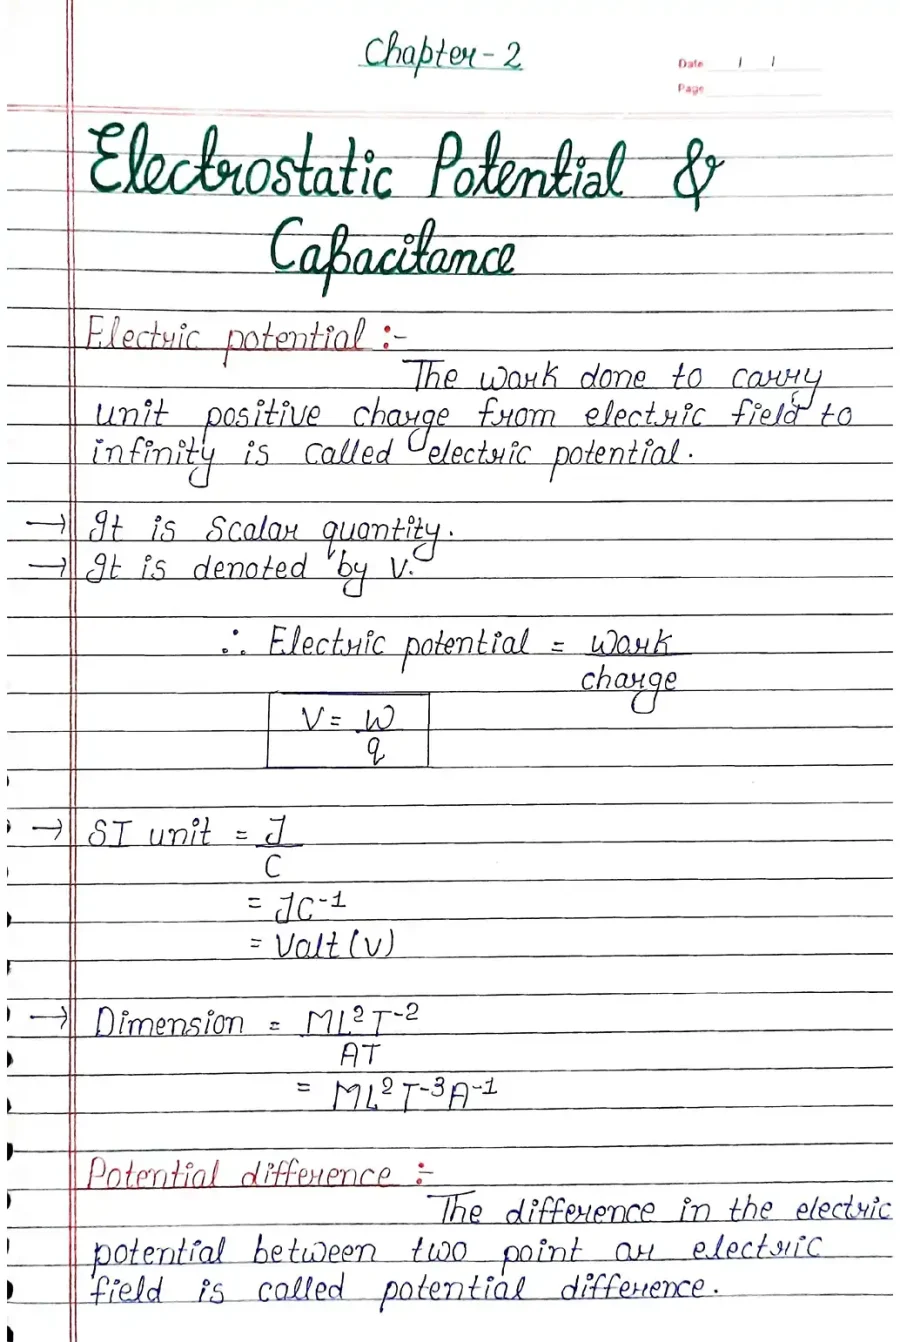 Chapter-2
Date / /
Page
Electrostatic Potential &
Capacitance
Electric potential :-
The work done to carry
unit positive charge from electric field to
infinity is called electric potential.
→ It is Scalar quantity.
→ It is denoted by V.
∴ Electric potential = work
charge
V = W
q
→ SI unit = J
C
= JC⁻¹
= Valt (v)
→ Dimension = ML²T⁻²
AT
= ML²T⁻³A⁻¹
Potential difference :-
The difference in the electric
potential between two point or electric
field is called potential difference.